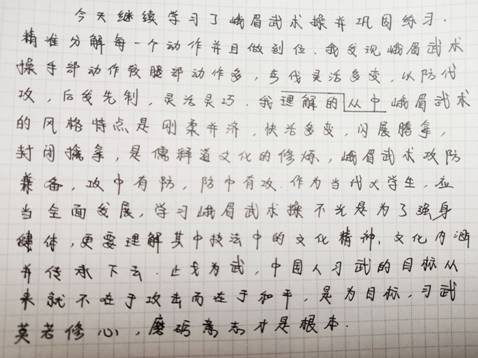 今天继续学习了峨眉武术操并巩固练习.
精准分解每一个动作并且做到位.我发现峨眉武术
操手部动作较腿部动作多,步伐灵活多变,以防代
攻,后发先制,灵活灵巧.我理解的从中峨眉武术
的风格特点是刚柔并济,快活多变,闪展腾拿,
封闭擒拿,是儒释道文化的修炼,峨眉武术攻防
兼备,攻中有防,防中有攻.作为当代大学生,应
当全面发展,学习峨眉武术操不光是为了强身
健体,更要理解其中技法中的文化精神,文化内涵
并传承下去.止戈为武,中国人习武的目标从
来就不在于攻击而在于和平,是为目标,习武
莫若修心,磨砺意志才是根本.